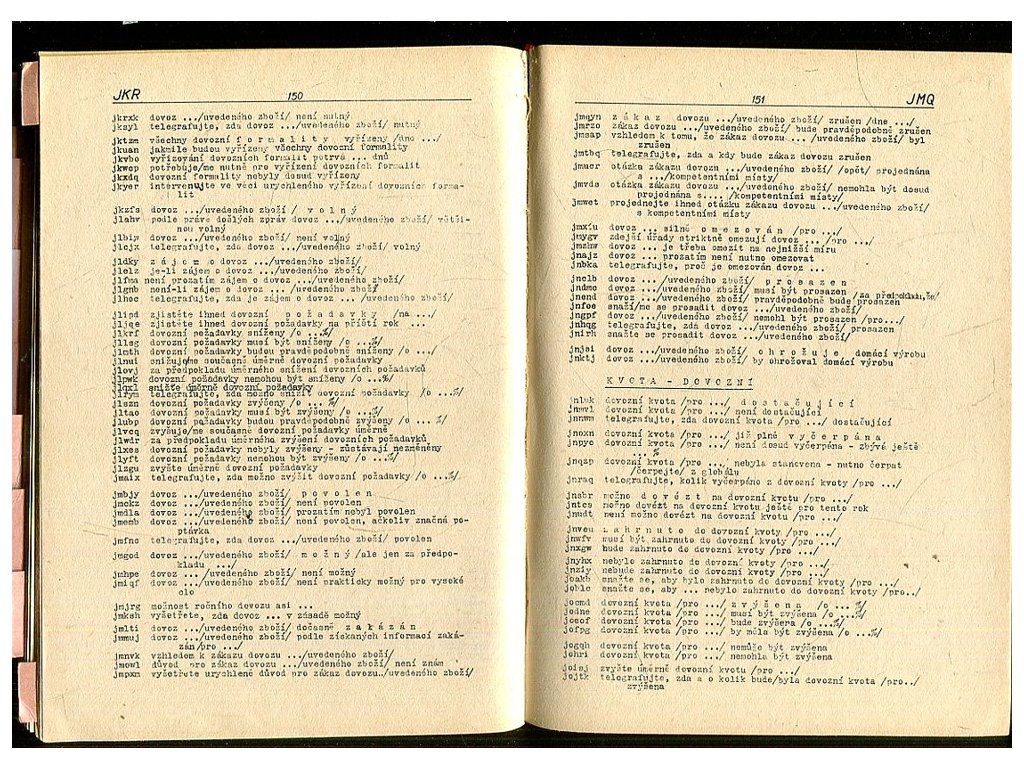 JKR 150
jkrxk dovoz .../uvedeného zboží/ není nutný
jksyl telegrafujte, zda dovoz .../uvedeného zboží/ nutný
jktzm všechny dovozní f o r m a l i t y vyřízeny /dne .../
jkuan jakmile budou vyřízeny všechny dovozní formality
jkvbo vyřizování dovozních formalit potrvá ... dnů
jkwcp potřebuje/me nutně pro vyřízení dovozních formalit
jkxdq dovozní formality nebyly dosud vyřízeny
jkyer intervenujte ve věci urychleného vyřízení dovozních forma-
lit
jkzfs dovoz .../uvedeného zboží / v o l n ý
jlahv podle právě došlých zpráv dovoz .../uvedeného zboží/ větši-
nou volný
jlbiw dovoz .../uvedeného zboží/ není volný
jlcjx telegrafujte, zda dovoz .../uvedeného zboží/ volný
jldky z á j e m o dovoz .../uvedeného zboží/
jlelz je-li zájem o dovoz .../uvedeného zboží/
jlfma není prozatím zájem o dovoz .../uvedeného zboží/
jlgnb není-li zájem o dovoz .../uvedeného zboží/
jlhoc telegrafujte, zda je zájem o dovoz ... /uvedeného zboží/
jlipd zjistěte ihned dovozní p o ž a d a v k y /na .../
jljqe zjistěte ihned dovozní požadavky na příští rok ...
jlkrf dovozní požadavky sníženy /o ...%/
jllsg dovozní požadavky musí být sníženy /o ...%/
jlmth dovozní požadavky budou pravděpodobně sníženy /o .../
jlnui snižuj/me současně úměrně dovozní požadavky
jlovj za předpokladu úměrného snížení dovozních požadavků
jlpwk dovozní požadavky nemohou být sníženy /o ...%/
jlqxl snižte úměrně dovozní požadavky
jlrym telegrafujte, zda možno snížit dovozní požadavky /o ...%/
jlszn dovozní požadavky zvýšeny /o ... %/
jltao dovozní požadavky musí být zvýšeny /o ...%/
jlubp dovozní požadavky budou pravděpodobně zvýšeny /o ... %/
jlvcq zvyšuje/me současně dovozní požadavky úměrně
jlwdr za předpokladu úměrného zvýšení dovozních požadavků
jlxes dovozní požadavky nebyly zvýšeny - zůstávají nezměněny
jlyft dovozní požadavky nemohou být zvýšeny /o ...%/
jlzgu zvyšte úměrně dovozní požadavky
jmaix telegrafujte, zda možno zvýšit dovozní požadavky /o ...%/
jmbjy dovoz .../uvedeného zboží/ p o v o l e n
jmckz dovoz .../uvedeného zboží/ není povolen
jmdla dovoz .../uvedeného zboží/ prozatím nebyl povolen
jmemb dovoz .../uvedeného zboží/ není povolen, ačkoliv značná po-
ptávka
jmfnc telegrafujte, zda dovoz .../uvedeného zboží/ povolen
jmgod dovoz .../uvedeného zboží/ m o ž n ý /ale jen za předpo-
kladu .../
jmhpe dovoz .../uvedeného zboží/ není možný
jmiqf dovoz .../uvedeného zboží/ není prakticky možný pro vysoké
clo
jmjrg možnost ročního dovozu asi ...
jmksh vyšetřete, zda dovoz ... v zásadě možný
jmlti dovoz .../uvedeného zboží/ dočasně z a k á z á n
jmmuj dovoz .../uvedeného zboží/ podle získaných informací zaká-
zán/pro .../
jmnvk vzhledem k zákazu dovozu .../uvedeného zboží/
jmowl důvod pro zákaz dovozu .../uvedeného zboží/ není znám
jmpxm vyšetřete urychleně důvod pro zákaz dovozu../uvedeného zboží/
151 JMQ
jmqyn z á k a z dovozu .../uvedeného zboží/ zrušen /dne .../
jmrzo zákaz dovozu .../uvedeného zboží/ bude pravděpodobně zrušen
jmsap vzhledem k tomu, že zákaz dovozu ... /uvedeného zboží/ byl
zrušen
jmtbq telegrafujte, zda a kdy bude zákaz dovozu zrušen
jmucr otázka zákazu dovozu .../uvedeného zboží/ /opět/ projednána
s .../kompetentními místy/
jmvds otázka zákazu dovozu .../uvedeného zboží/ nemohla být dosud
projednána s.... /kompetentními místy/
jmwet projednejte ihned otázku zákazu dovozu .../uvedeného zboží/
s kompetentními místy
jmxfu dovoz ... silně o m e z o v á n /pro .../
jmygv zdejší úřady striktně omezují dovoz ... /pro .../
jmzhw dovoz ... je třeba omezit na nejnižší míru
jnajz dovoz ... prozatím není nutno omezovat
jnbka telegrafujte, proč je omezován dovoz ...
jnclb dovoz .../uvedeného zboží/ p r o s a z e n
jndmc dovoz .../uvedeného zboží/ musí být prosazen
jnend dovoz .../uvedeného zboží/ pravděpodobně bude prosazen /za předpokladu, že/
jnfoe snaží/me se prosadit dovoz .../uvedeného zboží/
jngpf dovoz .../uvedeného zboží/ nemohl být prosazen /pro.../
jnhqg telegrafujte, zda dovoz .../uvedeného zboží/ prosazen
jnirh snažte se prosadit dovoz .../uvedeného zboží/
jnjsi dovoz .../uvedeného zboží/ o h r o ž u j e domácí výrobu
jnktj dovoz .../uvedeného zboží/ by ohrožoval domácí výrobu
K V O T A - D O V O Z N Í
jnluk dovozní kvota /pro .../ d o s t a č u j í c í
jnmvl dovozní kvota /pro .../ není dostačující
jnnwm telegrafujte, zda dovozní kvota /pro .../ dostačující
jnoxn dovozní kvota /pro .../ již plně v y č e r p á n a
jnpyo dovozní kvota /pro .../ není dosud vyčerpána - zbývá ještě
... %
jnqzp dovozní kvota /pro .../ nebyla stanovena - nutno čerpat
/čerpejte/ z globálu
jnraq telegrafujte, kolik vyčerpáno z dovozní kvoty /pro .../
jnsbr možno d o v é z t na dovozní kvotu /pro .../
jntcs možno dovézt na dovozní kvotu ještě pro tento rok
jnudt není možno dovézt na dovozní kvotu /pro .../
jnveu z a h r n u t o do dovozní kvoty /pro .../
jnwfv musí být zahrnuto do dovozní kvoty /pro .../
jnxgw bude zahrnuto do dovozní kvoty /pro .../
jnyhx nebylo zahrnuto do dovozní kvoty /pro .../
jnziy nebude zahrnuto do dovozní kvoty /pro .../
joakb snažte se, aby bylo zahrnuto do dovozní kvoty /pro .../
joblc snažte se, aby ... nebylo zahrnuto do dovozní kvoty /pro../
jocmd dovozní kvota /pro .../ z v ý š e n a /o ... %/
jodne dovozní kvota /pro .../ musí být zvýšena /o ...%/
joeof dovozní kvota /pro .../ bude zvýšena /o ...%/
jofpg dovozní kvota /pro .../ by měla být zvýšena /o ...%/
jogqh dovozní kvota /pro .../ nemůže být zvýšena
johri dovozní kvota /pro .../ nemohla být zvýšena
joisj zvyšte úměrně dovozní kvotu /pro .../
jojtk telegrafujte, zda a o kolik bude/byla dovozní kvota /pro../
zvýšena